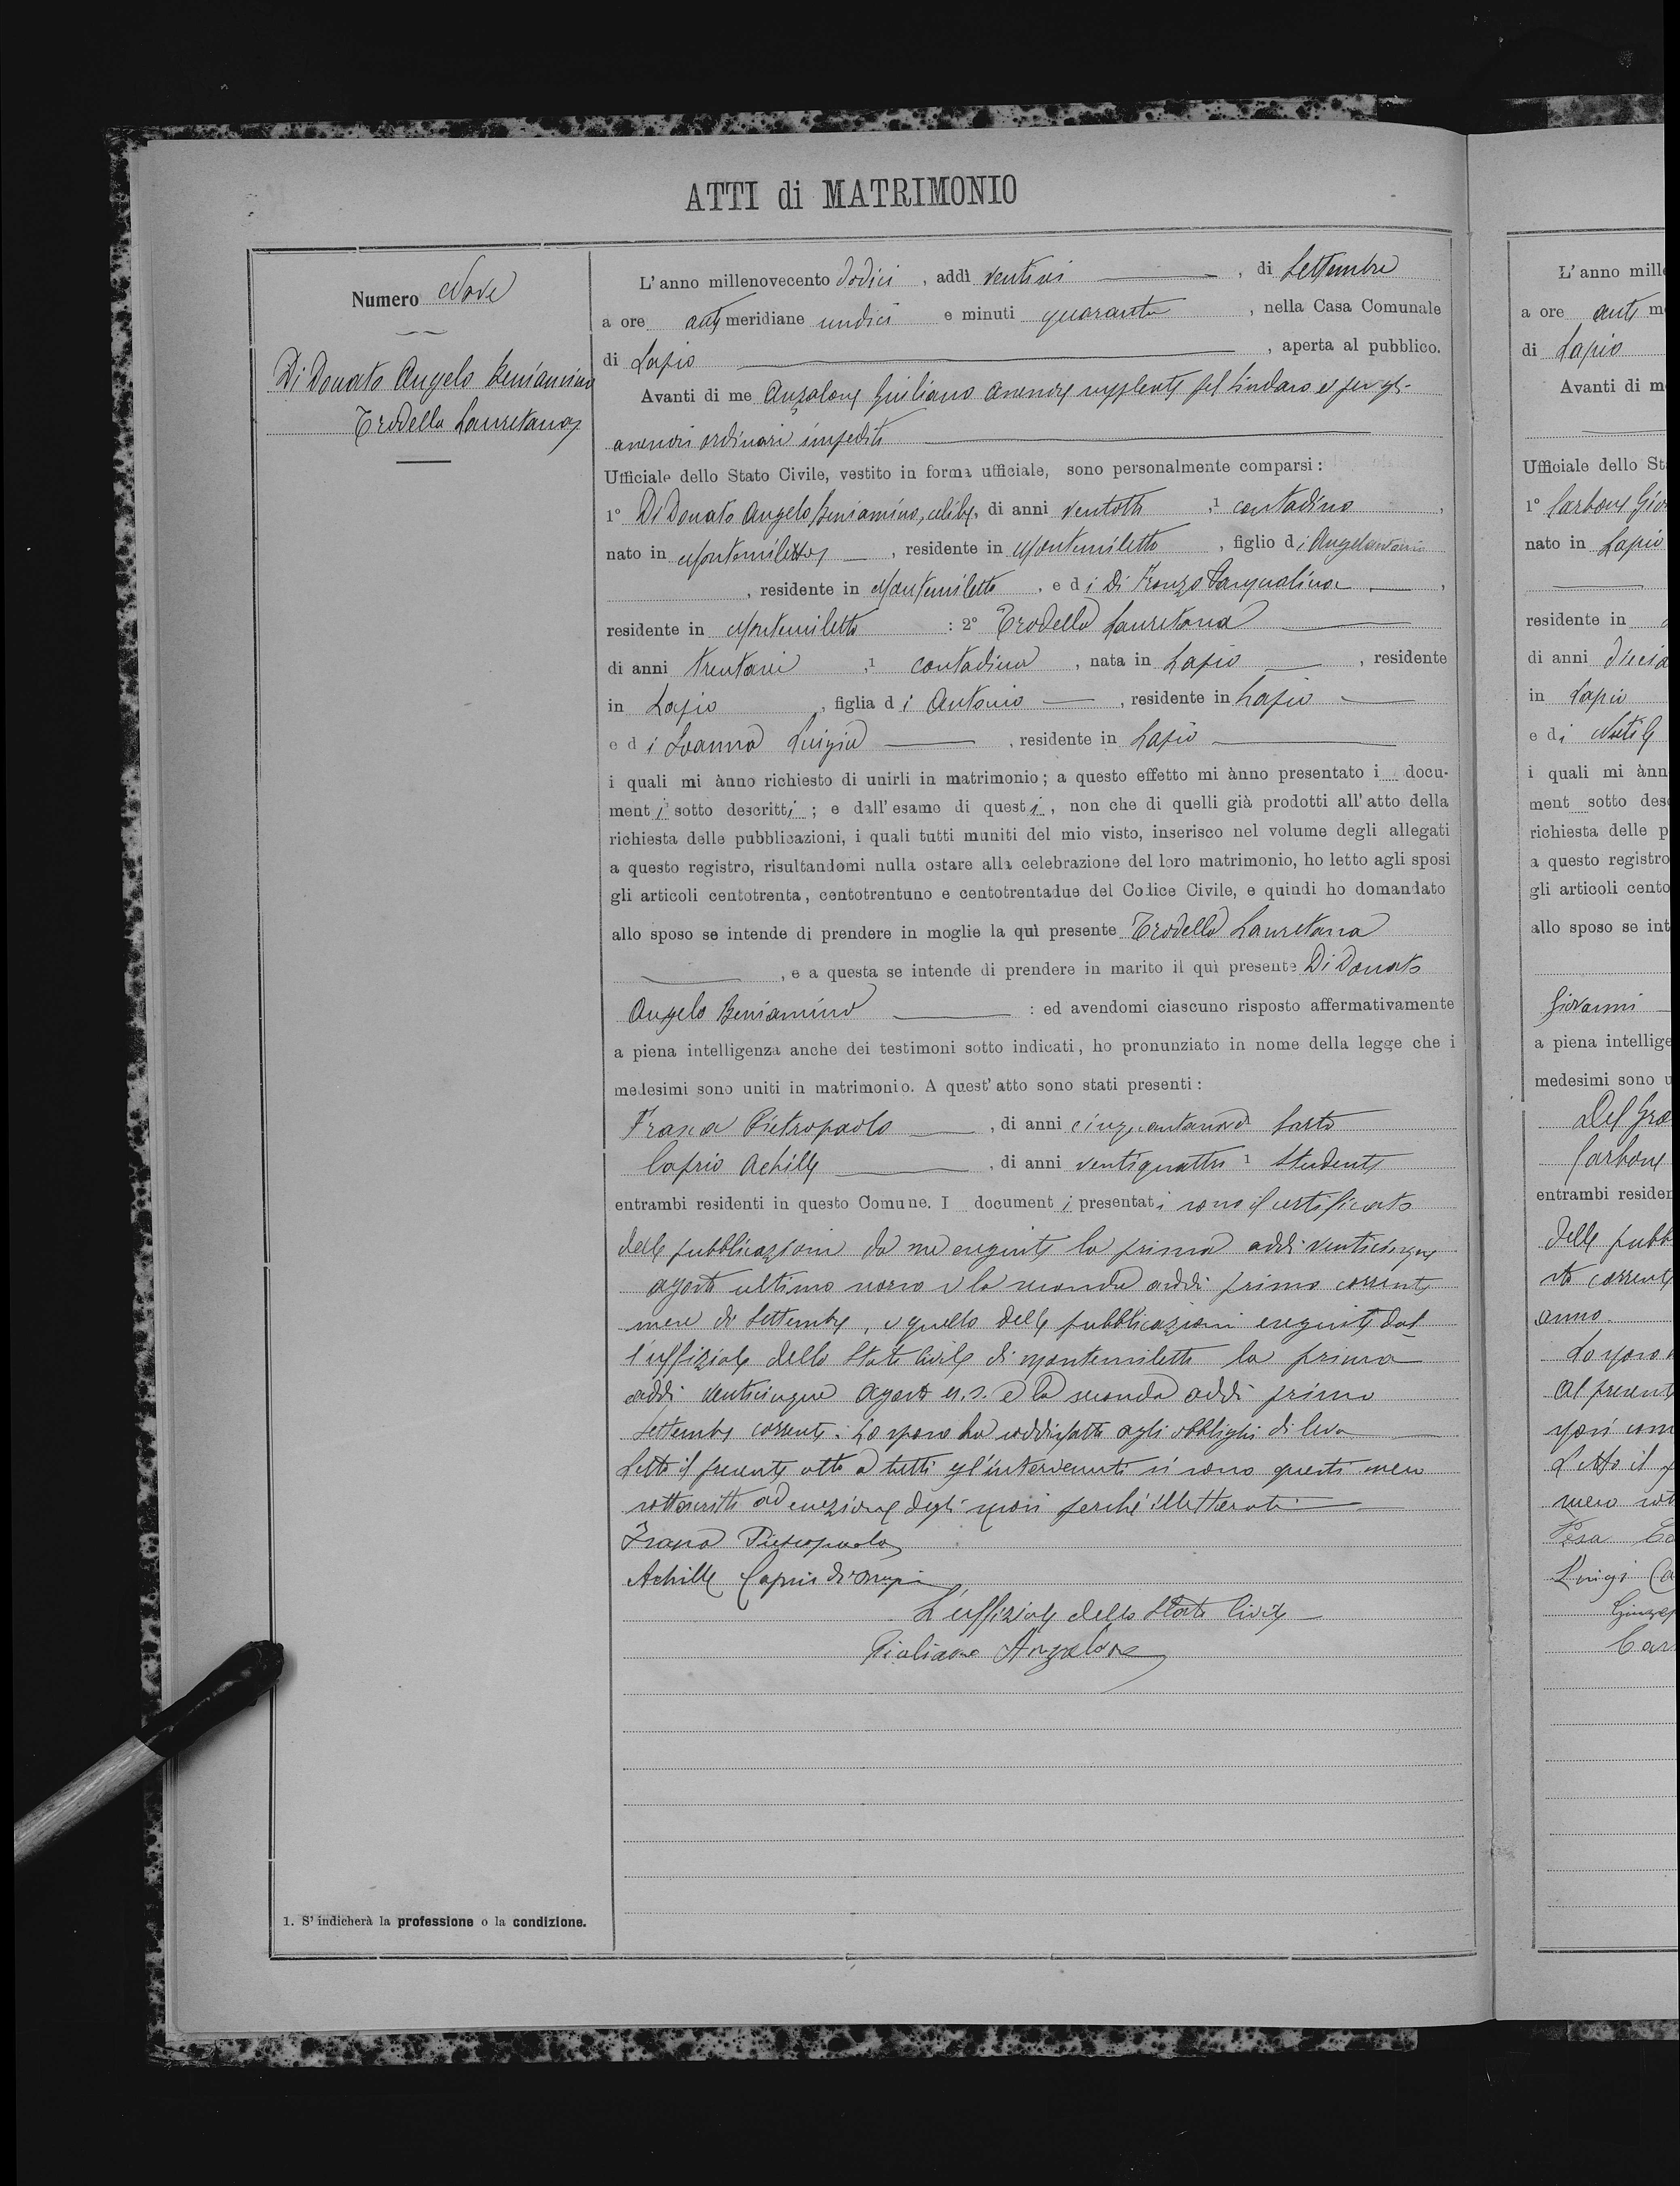 ATTI di MATRIMONIO
Numero Nove
Di Donato Angelo Beniamino
Trodella Lauretana
1. S'indicherà la professione o la condizione.
L'anno millenovecento dodici, addì ventisei, di Settembre
a ore antimeridiane undici e minuti quaranta, nella Casa Comunale
di Lapio, aperta al pubblico.
Avanti di me Anzalone Giuliano assessore supplente pel Sindaco e per gli
assessori ordinari impediti
Ufficiale dello Stato Civile, vestito in forma ufficiale, sono personalmente comparsi:
1° Di Donato Angelo Beniamino, celibe, di anni ventotto, 1 contadino,
nato in Montemiletto, residente in Montemiletto, figlio di Angelantonio
, residente in Montemiletto, e di Di Fronzo Pasqualina,
residente in Montemiletto: 2° Trodella Lauretana
di anni trentasei, 1 contadina, nata in Lapio, residente
in Lapio, figlia di Antonio, residente in Lapio
e di Joanna Luigia, residente in Lapio
i quali mi ànno richiesto di unirli in matrimonio; a questo effetto mi ànno presentato i docu-
menti sotto descritti; e dall'esame di questi, non che di quelli già prodotti all'atto della
richiesta delle pubblicazioni, i quali tutti muniti del mio visto, inserisco nel volume degli allegati
a questo registro, risultandomi nulla ostare alla celebrazione del loro matrimonio, ho letto agli sposi
gli articoli centotrenta, centotrentuno e centotrentadue del Codice Civile, e quindi ho domandato
allo sposo se intende di prendere in moglie la quì presente Trodella Lauretana
, e a questa se intende di prendere in marito il quì presente Di Donato
Angelo Beniamino: ed avendomi ciascuno risposto affermativamente
a piena intelligenza anche dei testimoni sotto indicati, ho pronunziato in nome della legge che i
medesimi sono uniti in matrimonio. A quest'atto sono stati presenti:
Frasca Pietropaolo, di anni cinquantanove sarto
Caprio Achille, di anni ventiquattro 1 studente
entrambi residenti in questo Comune. I documenti presentati sono il certificato
delle pubblicazioni da me eseguite la prima addì venticinque
agosto ultimo scorso e la seconda addì primo corrente
mese di Settembre, e quello delle pubblicazioni eseguite dal-
l'uffiziale dello Stato Civile di Montemiletto la prima
addì venticinque agosto u.s. e la seconda addì primo
settembre corrente. Lo sposo ha soddisfatto agli obblighi di leva
Letto il presente atto a tutti gl'intervenuti si sono questi meco
sottoscritti ad eccezione degli sposi perché illetterati.
Frasca Pietropaolo
Achille Caprio di
L'uffiziale dello Stato Civile
Giuliano Anzalone
L'anno mille
a ore anti m
di Lapio
Avanti di m
Ufficiale dello St
1° Carbone Gio
nato in Lapio
residente in
di anni dicia
in Lapio
e di
i quali mi ànn
ment sotto des
richiesta delle p
a questo registro
gli articoli cento
allo sposo se int
Giovanni
a piena intellige
medesimi sono u
Del Gro
Carbone
entrambi residen
delle pubb
sto corrente
anno.
Lo sposo
Al present
sposi com
Letto il p
meco sot
Luigi Ca
Car